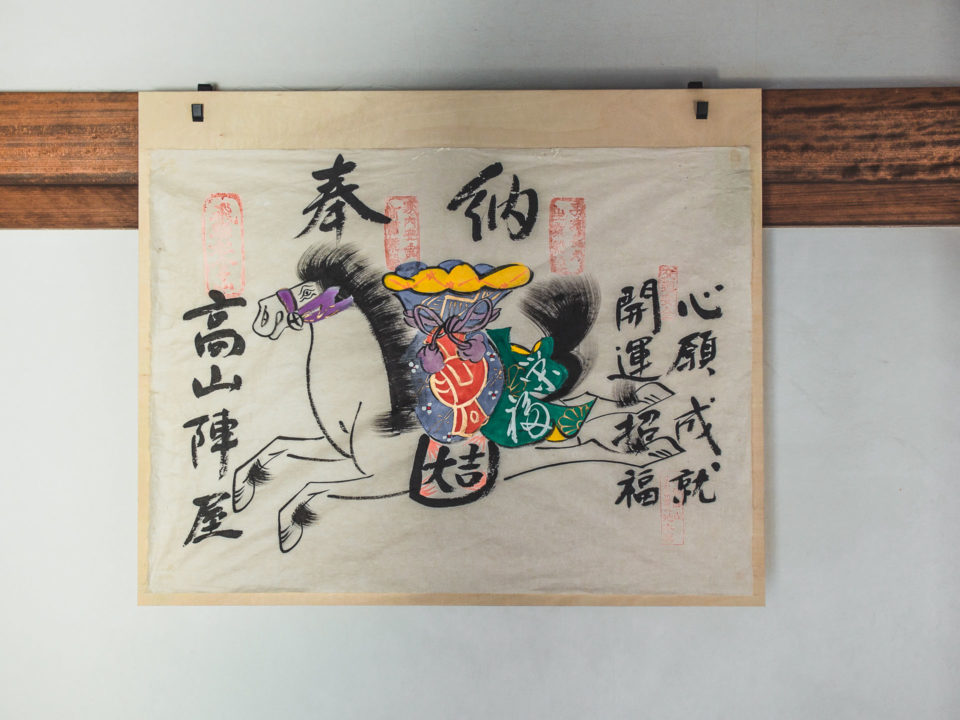 奉納
心願成就
開運招福
福
大吉
高山陣屋